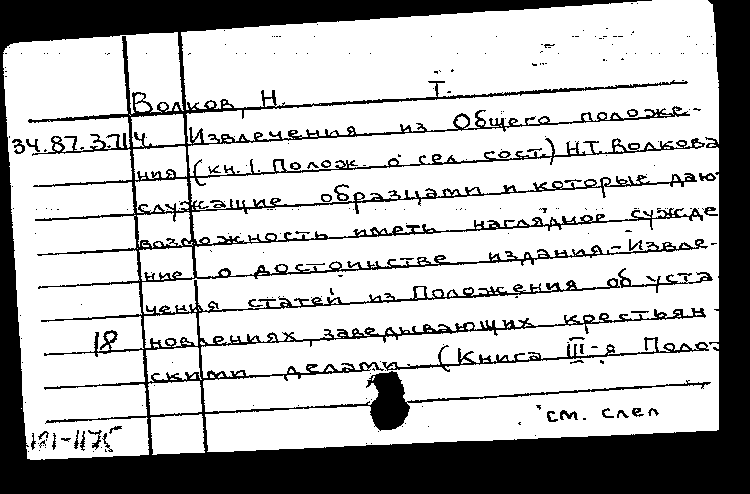 Волков, Н. Т.
34.87.3.71 4. Извлечения из Общего положе-
ния (кн. I. Полож. о сел. сост.) Н.Т. Волкова
служащие образцами и которые даю
возможность иметь наглядное сужде
ние о достоинстве издания.-Извле-
чения статей из Положения об уста
новлениях, заведывающих крестьян-
18
скими делами. (Книга III-я Поло-
см. след
181-1175